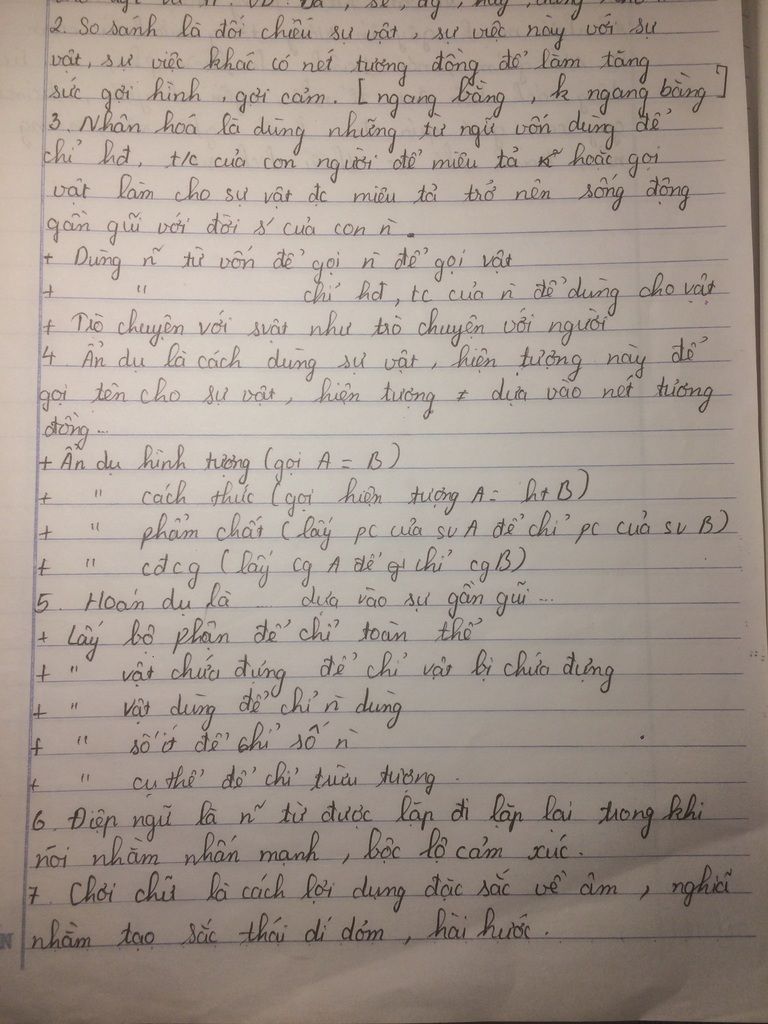 2. So sánh là đối chiếu sự vật, sự việc này với sự
vật, sự việc khác có nét tương đồng để làm tăng
sức gợi hình, gợi cảm. [ngang bằng, k ngang bằng]
3. Nhân hoá là dùng những từ ngữ vốn dùng để
chỉ hđ, t/c của con người để miêu tả hoặc gọi
vật làm cho sự vật đc miêu tả trở nên sống động
gần gũi với đời s' của con n`.
+ Dùng n~ từ vốn để gọi n` để gọi vật
+ " chỉ hđ, tc của n` để dùng cho vật
+ Trò chuyện với svật như trò chuyện với người
4. Ẩn dụ là cách dùng sự vật, hiện tượng này để
gọi tên cho sự vật, hiện tượng ≠ dựa vào nét tương
đồng...
+ Ẩn dụ hình tượng (gọi A = B)
+ " cách thức (gọi hiện tượng A = ht B)
+ " phẩm chất (lấy pc của sv A để chỉ pc của sv B)
+ " cđcg (lấy cg A để chỉ cg B)
5. Hoán dụ là ... dựa vào sự gần gũi ...
+ Lấy bộ phận để chỉ toàn thể
+ " vật chứa đựng để chỉ vật bị chứa đựng
+ " vật dùng để chỉ n` dùng
+ " số ít để chỉ số n`
+ " cụ thể để chỉ trừu tượng.
6. Điệp ngữ là n~ từ được lặp đi lặp lại trong khi
nói nhằm nhấn mạnh, bộc lộ cảm xúc.
7. Chơi chữ là cách lợi dụng đặc sắc về âm, nghĩa
nhằm tạo sắc thái dí dỏm, hài hước.